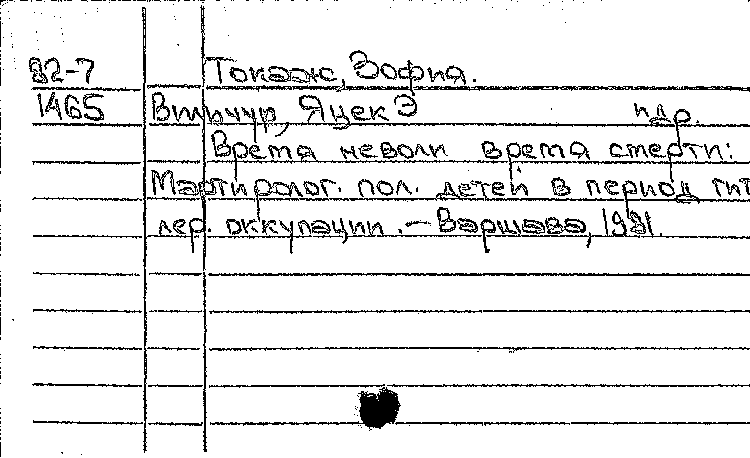 82-7 Токаж, Зофия.
1465 Вильчур, Яцек Э пдр.
Время неволи время смерти:
Мартиролог. пол. детей в период гит
лер. оккупации. — Варшава, 1981.